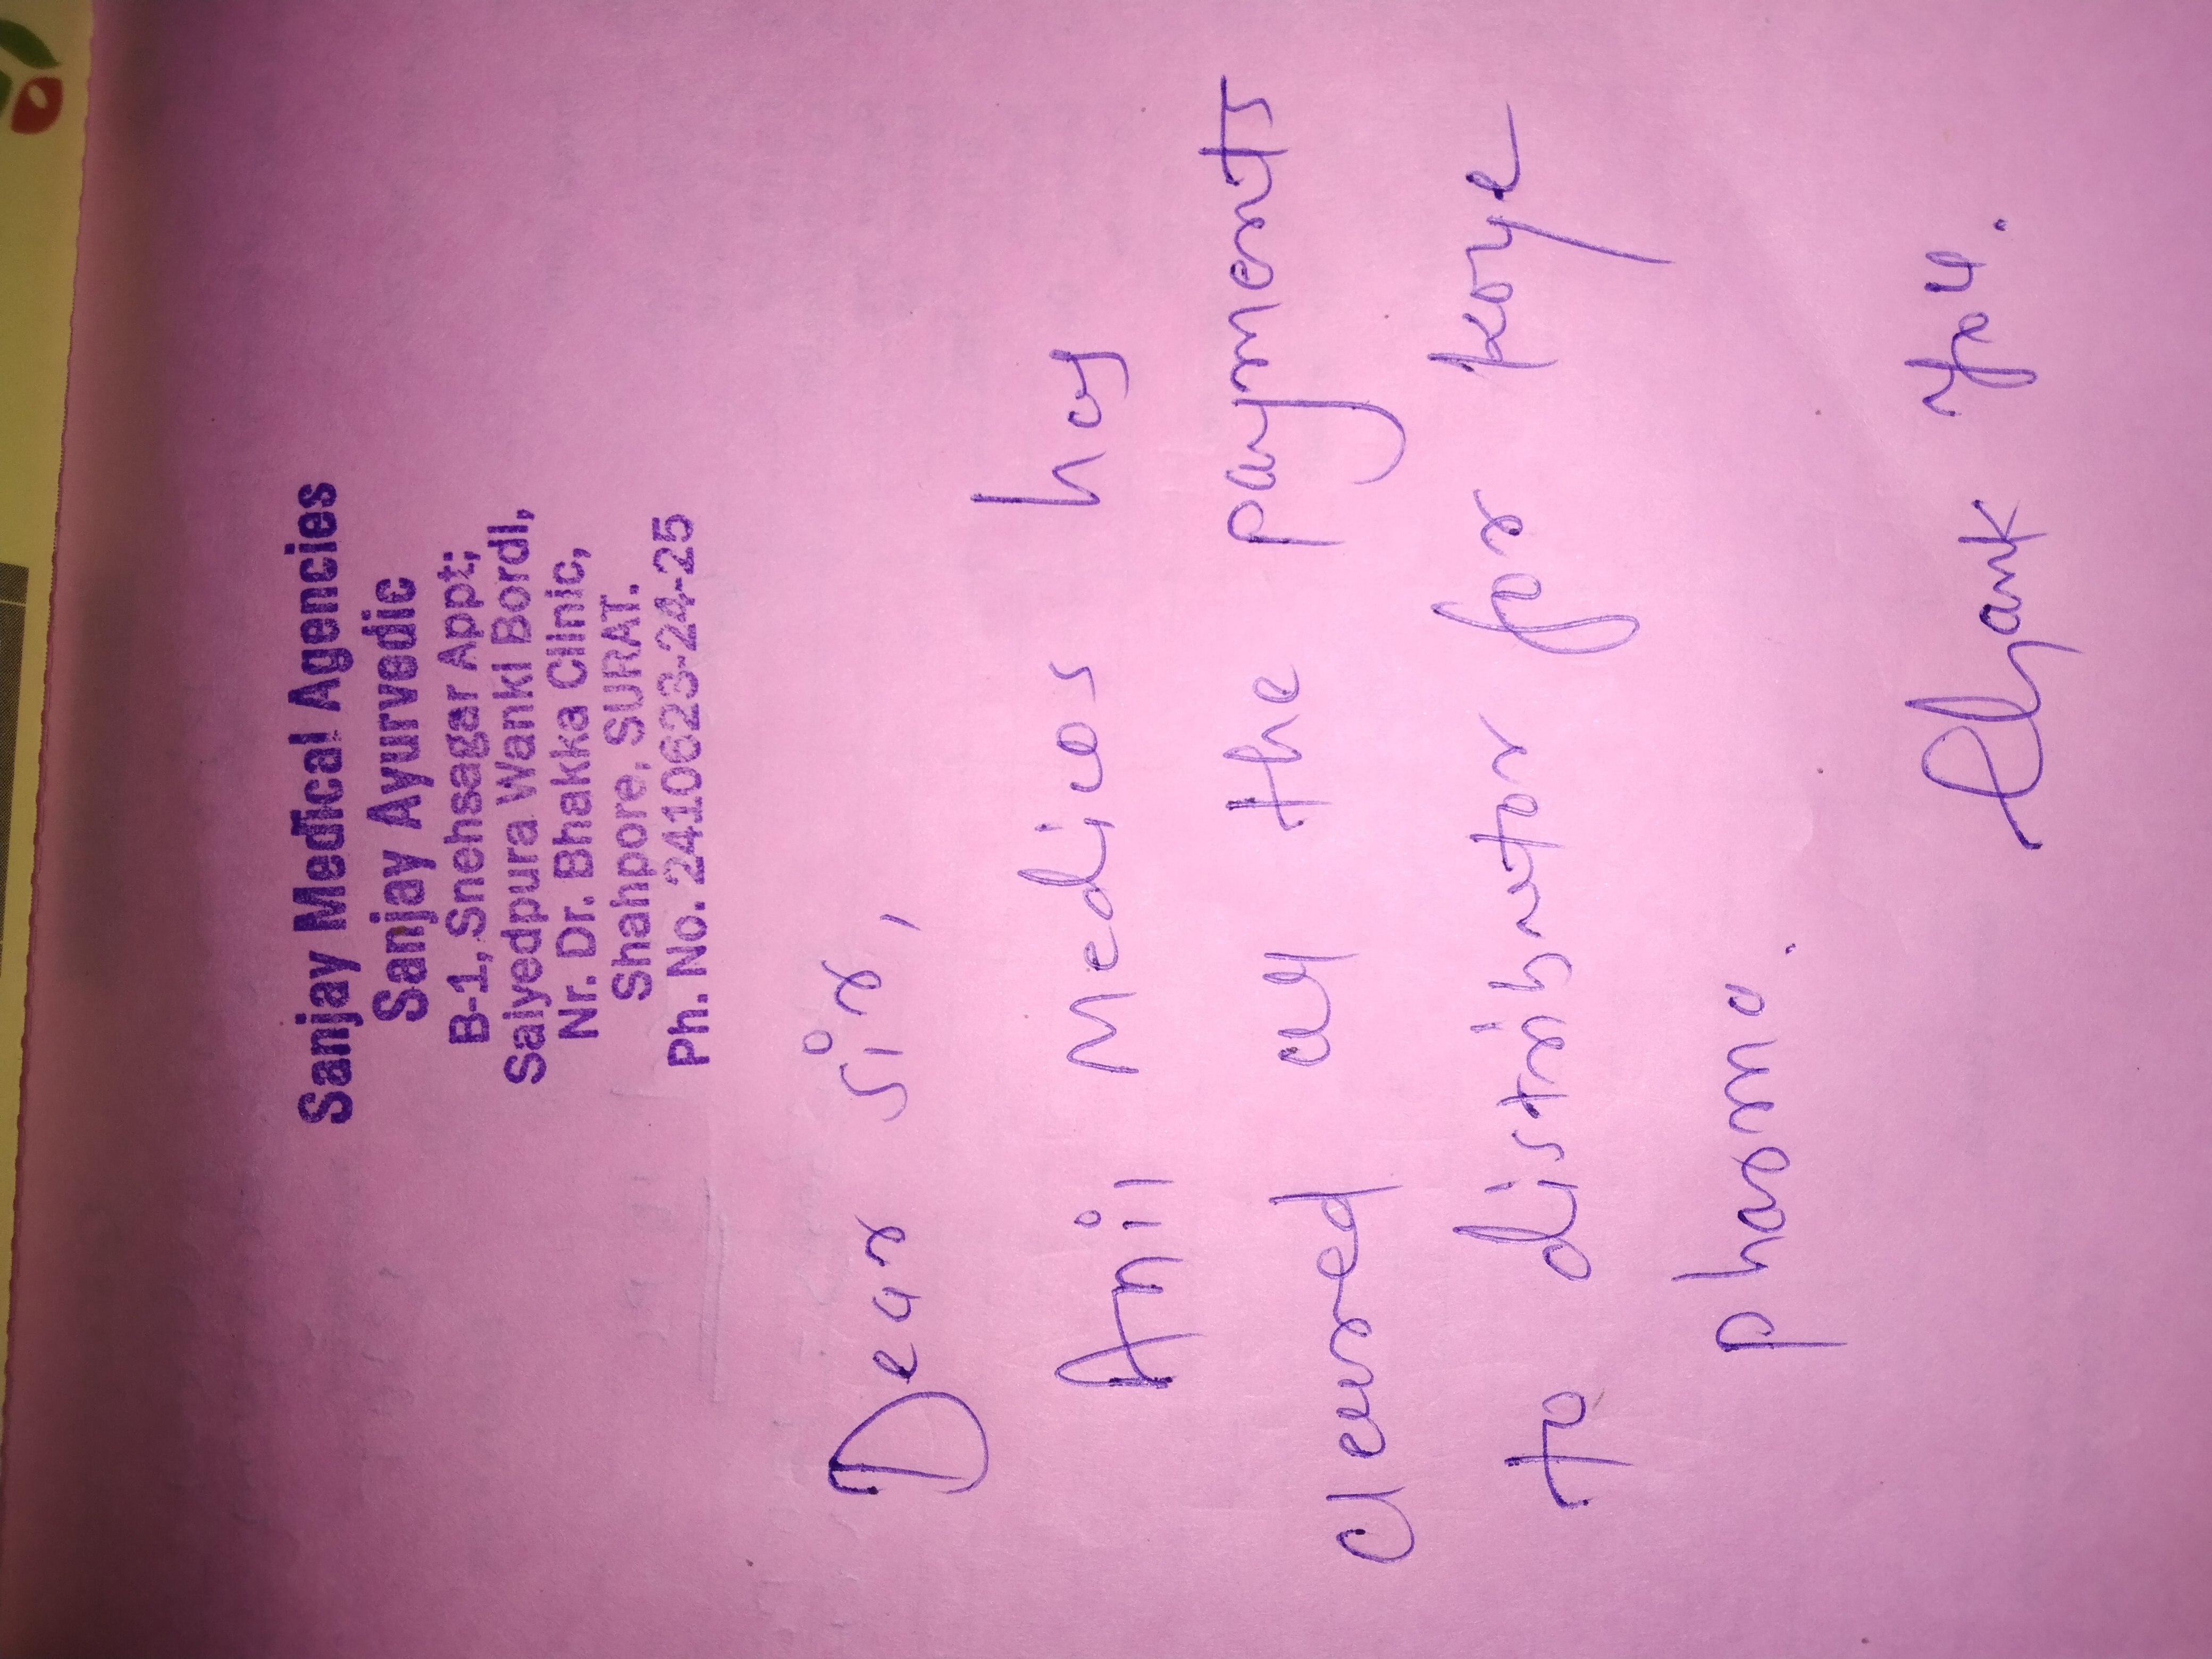 Sanjay Medical Agencies
Sanjay Ayurvedic
B-1, Snehsagar Appt;
Saiyedpura Wanki Bordi,
Nr. Dr. Bhakka Clinic,
Shahpore, SURAT.
Ph. No. 2410623-24-25
Dear sir,
Anil Medicos has
cleared all the payments
to distributor for koye
pharma.
Thank you.